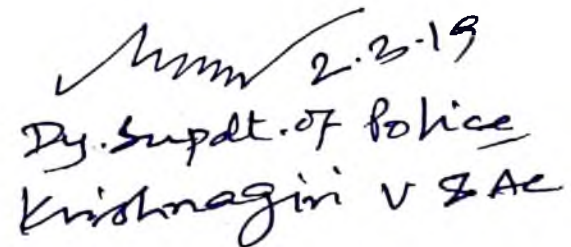 2.3.19
Dy. Supdt. of Police
Krishnagiri V & AC